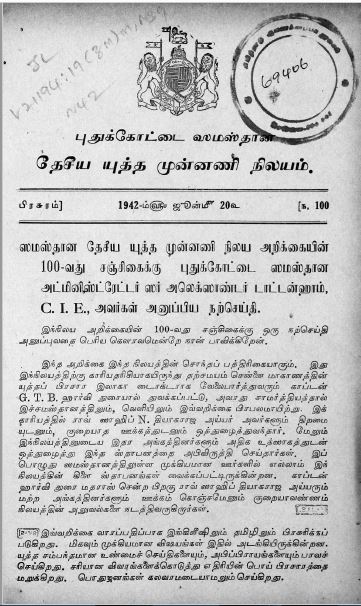 JL
69406
புதுக்கோட்டை ஸமஸ்தான
தேசீய யுத்த முன்னணி நிலயம்.
பிரசுரம்]
1942-ம்ஹு ஜூன்மீ 20உ
[ந. 100
ஸமஸ்தான தேசீய யுத்த முன்னணி நிலய அறிக்கையின்
100-வது சஞ்சிகைக்கு புதுக்கோட்டை ஸமஸ்தான
அட்மினிஸ்ட்ரேட்டர் ஸர் அலெக்ஸாண்டர் டாட்டன்ஹாம்,
C. I. E., அவர்கள் அனுப்பிய நற்செய்தி.
இந்நிலய அறிக்கையின் 100-வது சஞ்சிகைக்கு ஒரு நற்செய்தி
அனுப்புவதை பெரிய கௌரவமென்றே நான் பாவிக்கிறேன்.
இந்த அறிக்கை இந்த நிலயத்தின் சொந்தப் பத்திரிகையாகும். இது
இந்நிலயத்திற்கு காரியதரிசியாகயிருந்து தற்சமயம் சென்னை மாகாணத்தின்
யுத்தப் பிரசார இலாகா டைரக்டராக வேலைபார்த்துவரும் காப்டன்
G. T. B. ஹார்வி துரையால் துவக்கப்பட்டு, அவரது சாமர்த்தியத்தால்
இச்சமஸ்தானத்திலும், வெளியிலும் இவ்வறிக்கை பிரபலமாயிற்று. இக்
காரியத்தில் ராவ் ஸாஹிப் N. தியாகராஜ அய்யர் அவர்களும் திறமை
யுடனும், குறையாத ஊக்கத்துடனும் ஒத்துழைத்துவந்தார். மேலும்
இந்நிலயத்தினுடைய இதர அங்கத்தினர்களும் அதிக உத்ஸாகத்துடன்
ஒத்துழைத்து இந்த ஸ்தாபனத்தை அபிவிருத்தி செய்தார்கள். இப்
பொழுது ஸமஸ்தானத்திலுள்ள முக்கியமான ஊர்களில் எல்லாம் இந்
நிலயத்தின் கிளை ஸ்தாபனங்கள் வைக்கப்பட்டிருக்கின்றன. காப்டன்
ஹார்வி துரை மதராஸ் சென்ற பிறகு ராவ் ஸாஹிப் தியாகராஜ அய்யரும்
மற்ற அங்கத்தினர்களும் ஊக்கம் கொஞ்சமேனும் குறையாவண்ணம்
நிலயத்தின் அலுவல்களை நடத்திவருகிறார்கள்.
இவ்வறிக்கை வாரப்பதிப்பாக இங்கிலீஷிலும் தமிழிலும் பிரசுரிக்கப்
படுகிறது. மிகவும் முக்கியமான விஷயங்கள் இதில் அடங்கியிருக்கின்றன.
யுத்த சம்பந்தமான உண்மைச் செய்திகளையும், அபிப்பிராயங்களையும் பரவச்
செய்கிறது. சரியான விவரங்களைக்கொடுத்து எதிரியின் பொய் பிரசாரத்தை
மறுக்கிறது. பொதுஜனங்கள் கலவரமடையாமலும் செய்கிறது.